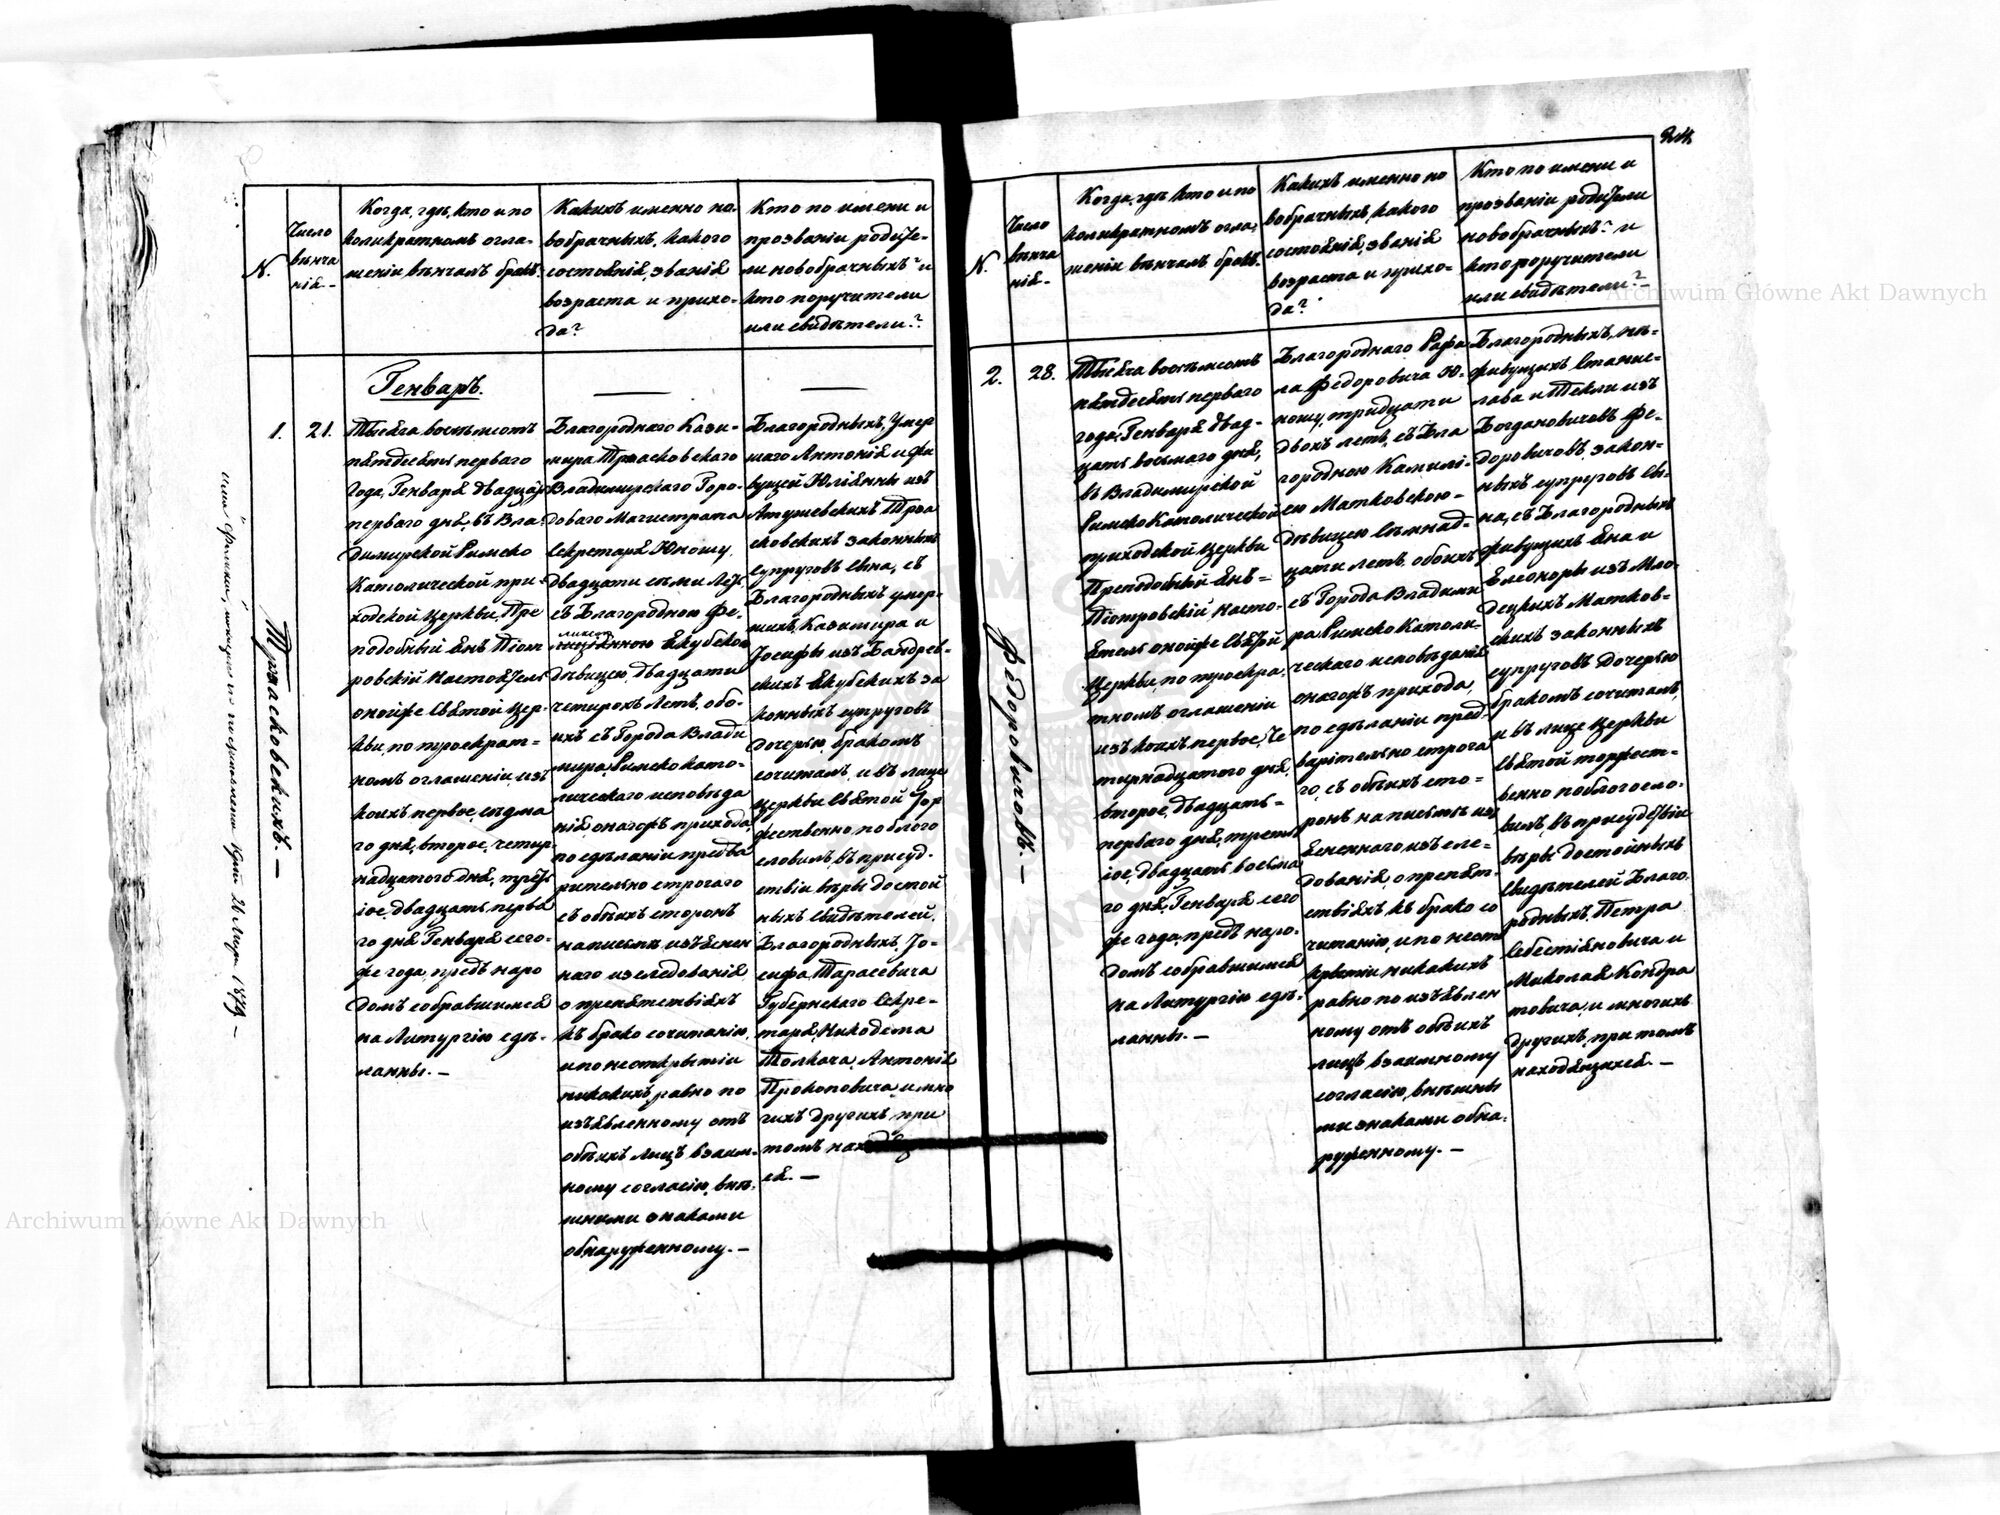 24.
N.
Число
вѣнча
нія.
Когда, гдѣ, кто и по
коликратномъ огла-
шеніи вѣнчалъ бракъ.
Какихъ именно но-
вобрачныхъ, какого
состоянія, званія
возраста и прихо-
да?
Кто по имени и
прозваніи родите-
ли новобрачныхъ? и
кто поручители
или свидѣтели?
Генварь.
1.
21.
Тысяча восемьсотъ
пятдесятъ перваго
года, Генваря двадцать
перваго дня, въ Вла-
димирской Римско
Католической при-
ходской Церкви, Пре
подобный Янъ Піот
ровскій Настоятель
онойже Святой Цер-
кви, по троекрат-
номъ оглашеніи, изъ
коихъ первое, седма
го дня, второе, четыр
надцатого дня, треть
іое, двадцать перва
го дня Генваря сего-
же года, предъ наро
домъ собравшимся
на Литургію сдѣ-
ланны. —
Благороднаго Кази-
мира Трасковскаго
Владимирскаго Горо-
доваго Магистрата
Секретаря Юношу,
двадцати семи летъ,
съ Благородною Фе-
лиціанною Якубскою
дѣвицею, двадцати
четырохъ летъ, обо-
ихъ съ Города Влади
мира, Римско като-
лическаго исповѣда
нія онагожъ прихода,
по сдѣланіи предва
рительно строгаго
съ обѣихъ сторонъ
написмѣ изъясненн
наго изследованія
о препятствіяхъ
къ брако сочитанію,
и по неоткрытіи
никакихъ, равно по
изъявленному отъ
обѣихъ лицъ взаим-
ному согласію, внѣ-
шными знаками
обнаруженному. —
Благородныхъ, Умер
шаго Антонія и жи
вущей Юліянны изъ
Трас
ковскихъ законныхъ
супруговъ сына, съ
Благородныхъ умер-
шихъ Казимира и
Іосифы изъ Бандрев-
скихъ Якубскихъ за
конныхъ супруговъ
дочерью, бракомъ
сочиталъ, и въ лице
Церкви Святой Тор
жественно поблаго
словилъ, въ присуд-
ствіи вѣры достой
ныхъ свидѣтелей,
Благородныхъ, Іо-
сифа Тарасевича
Губернскаго Секре-
таря, Никодема
Толкача, Антонія
Прокоповича, и мно
гихъ другихъ, при
томъ
ся. —
Трасковскихъ. —
N.
Число
вѣнча
нія.
Когда, гдѣ, кто и по
коликратномъ огла-
шеніи вѣнчалъ бракъ.
Какихъ именно но
вобрачныхъ, какого
состоянія, званія
возраста и прихо-
да?
Кто по имени и
прозваніи родители
новобрачныхъ? и
кто поручители
или свидѣтели? —
2.
28.
Тысяча восемьсотъ
пятдесятъ перваго
года, Генваря двад-
цать восьмаго дня,
въ Владимирской
Римско Католической
приходской Церкви
Преподобный Янъ
Піотровскій Насто-
ятель онойже Святой
Церкви, по троекра-
тномъ оглашеніи
изъ коихъ первое, Че
тырнадцатого дня,
второе, двадцать
перваго дня, треть
іое, двадцать восьма
го дня, Генваря сего
же года, предъ наро-
домъ собравшимся
на Литургію сдѣ-
ланны. —
Благороднаго Рафа
ла Федоровича Ю-
ношу, тридцати
двохъ летъ, съ Бла
городною Камилі-
ею Матковскою
дѣвицею семнад-
цати летъ, обоихъ
съ Города Владими
ра Римско Католи-
ческаго исповѣданія
онагожъ прихода,
по сдѣланіи пред-
варительно строга
го, съ обѣихъ сто-
ронъ написмѣ изъ
ясненнаго изъ сле-
дованія, о препят-
ствіяхъ къ брако со
читанію, и по неот
крытіи никакихъ
равно по изъявлен
ному отъ обѣихъ
лицъ взаимному
согласію, внѣшны
ми знаками обна-
руженному. —
Благородныхъ, нѣ-
живущихъ Станис-
лава и Текли изъ
Богдановичовъ Фе-
доровичовъ закон-
ныхъ супруговъ сы-
на, съ Благородныхъ
живущихъ Яна и
Елеоноры изъ Мло-
децкихъ Матков-
скихъ законныхъ
супруговъ дочерью
бракомъ сочиталъ,
и въ лице Церкви
Святой торжест-
венно поблагосло-
вилъ, въ присудствіи
вѣры достойныхъ
свидѣтелей Благо-
родныхъ, Петра
Себестіяновича и
Миколая Кондра
товича, и многихъ
другихъ, при томъ
находящихся. —
Федоровичовъ. —
Archiwum Główne Akt Dawnych
Archiwum Główne Akt Dawnych